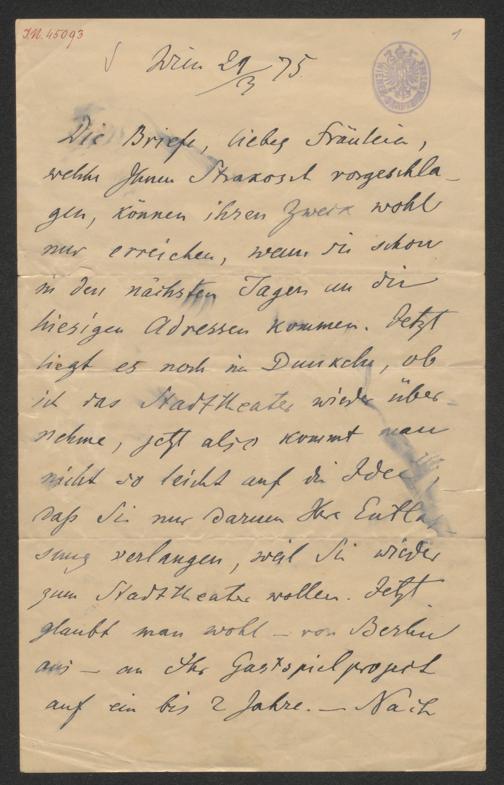 I.N. 45093
1
Wien 29/3 75.
Die Briefe, liebes Fräulein,
welche Ihnen Strakosch vorgeschla-
gen, können ihren Zweck wohl
nur erreichen, wenn sie schon
in den nächsten Tagen an die
hiesigen Adressen kommen. Jetzt
liegt es noch im Dunkeln, ob
ich das Stadttheater wieder über-
nehme, jetzt also kommt man
nicht so leicht auf die Idee,
daß Sie nur darum Ihre Entlas-
sung verlangen, weil Sie wieder
zum Stadttheater wollen. Jetzt
glaubt man wohl – von Berlin
aus – an Ihr Gastspielproject
auf ein bis 2 Jahre. – Nach